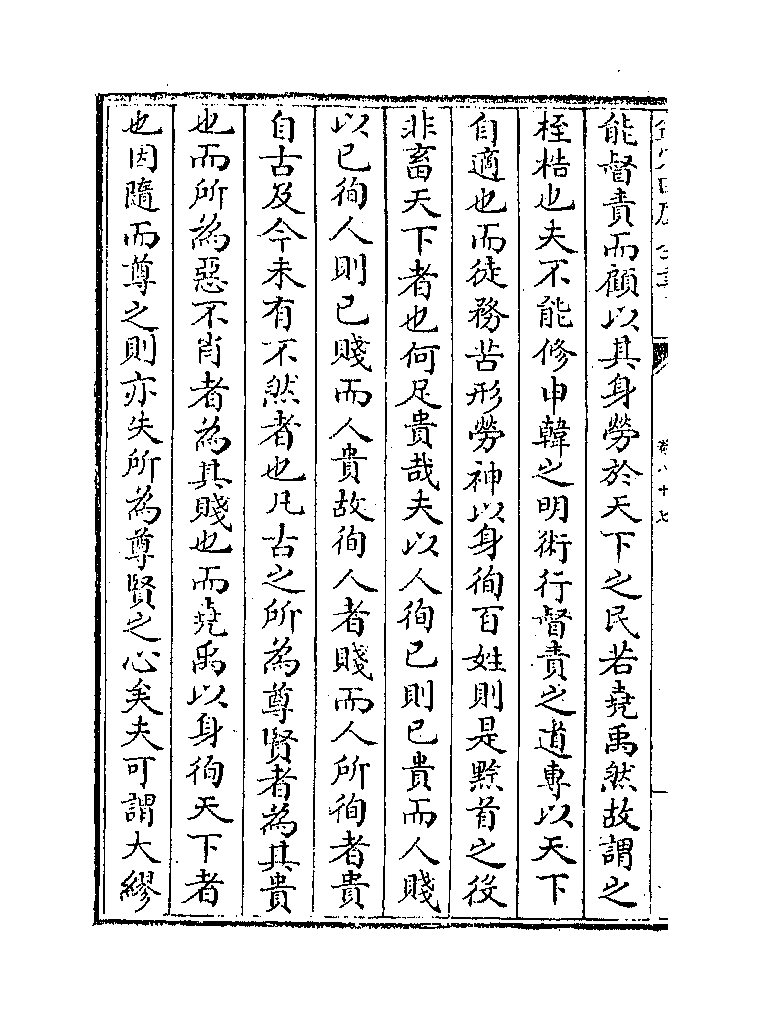 能督責而顧以其身勞於天下之民若堯禹然故謂之
桎梏也夫不能修申韓之明術行督責之道專以天下
自適也而徒務苦形勞神以身徇百姓則是黔首之役
非畜天下者也何足貴哉夫以人徇已則已貴而人賤
以已徇人則已賤而人貴故徇人者賤而人所徇者貴
自古及今未有不然者也凡古之所為尊賢者為其貴
也而所為惡不肖者為其賤也而堯禹以身徇天下者
也因隨而尊之則亦失所為尊賢之心矣夫可謂大繆